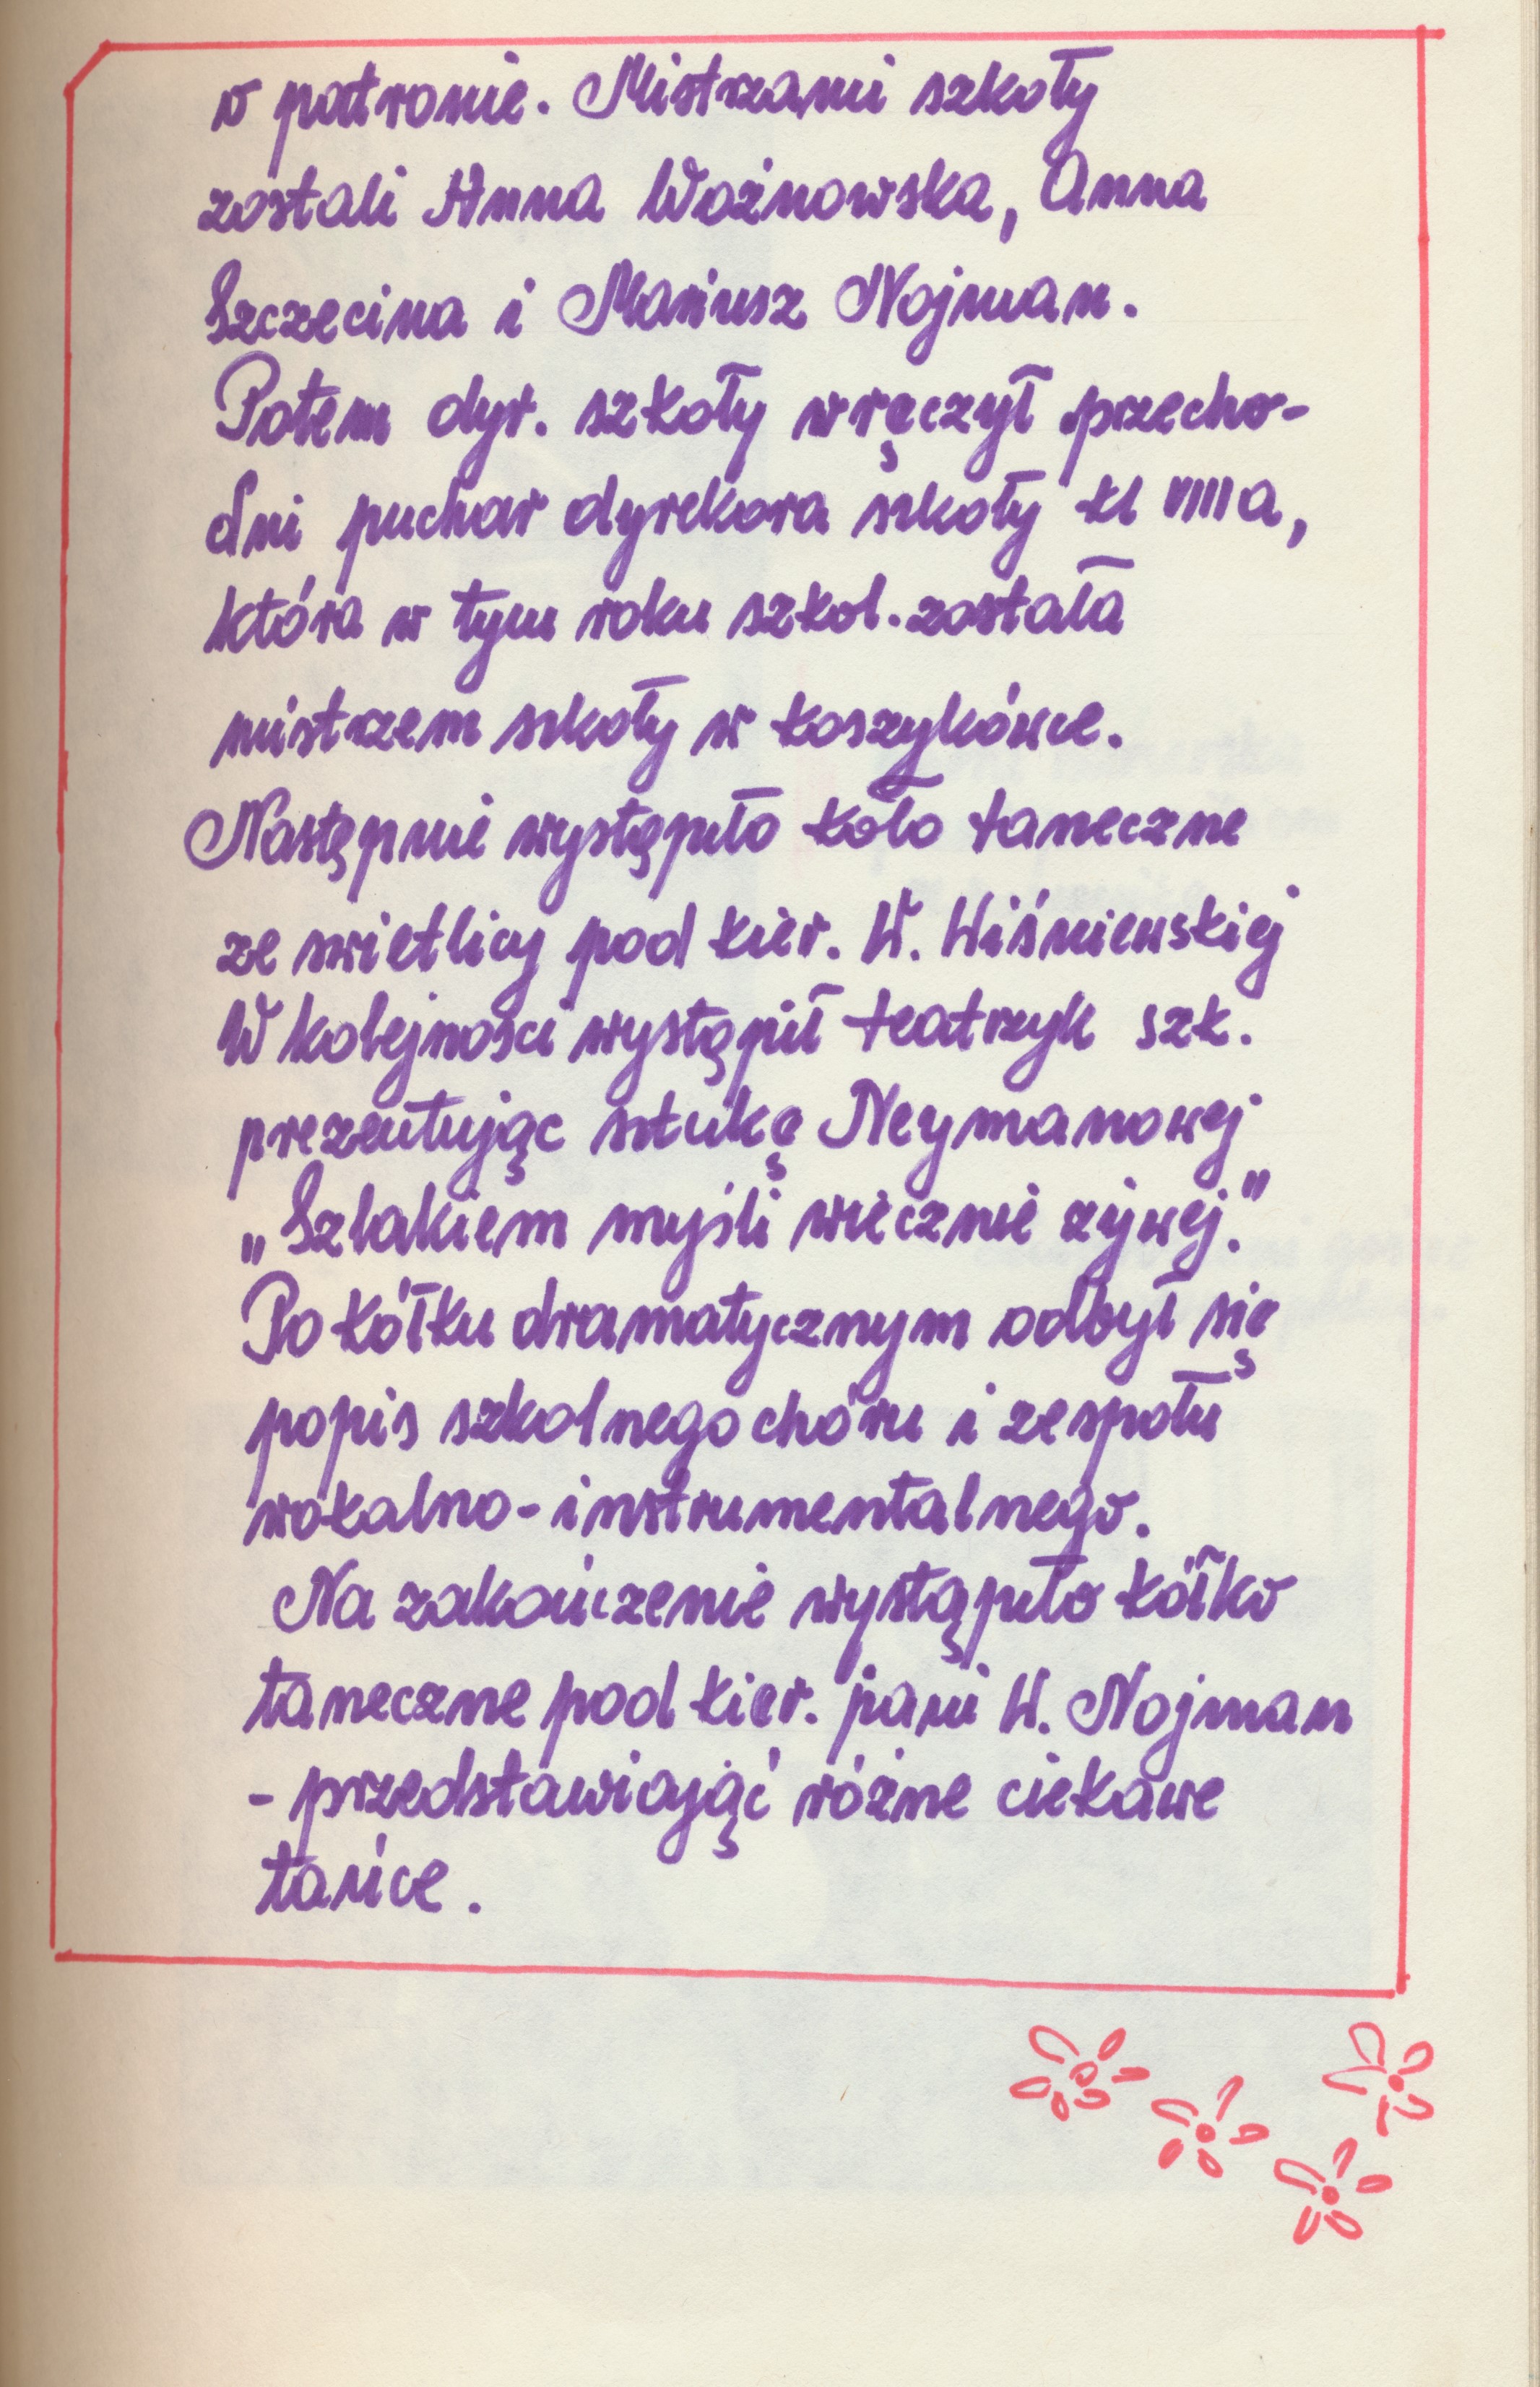 o patronie. Mistrzami szkoły
zostali Anna Woźnowska, Anna
Szczecina i Mariusz Nojman.
Potem dyr. szkoły wręczył przecho-
dni puchar dyrekora szkoły kl VIIIa,
która w tym roku szkol. została
mistrzem szkoły w koszykówce.
Następnie wystąpiło koło taneczne
ze swietlicy pod kier. W. Wiśniewskiej
W kolejności wystąpił teatrzyk szk.
prezentując sztukę Neymanowej
„Szlakiem myśli wiecznie żywej."
Po kółku dramatycznym odbył się
popis szkolnego chóru i zespołu
wokalno-instrumentalnego.
Na zakończenie wystąpiło kółko
taneczne pod kier. pani W. Nojman
- przedstawiająć różne ciekawe
tańce.